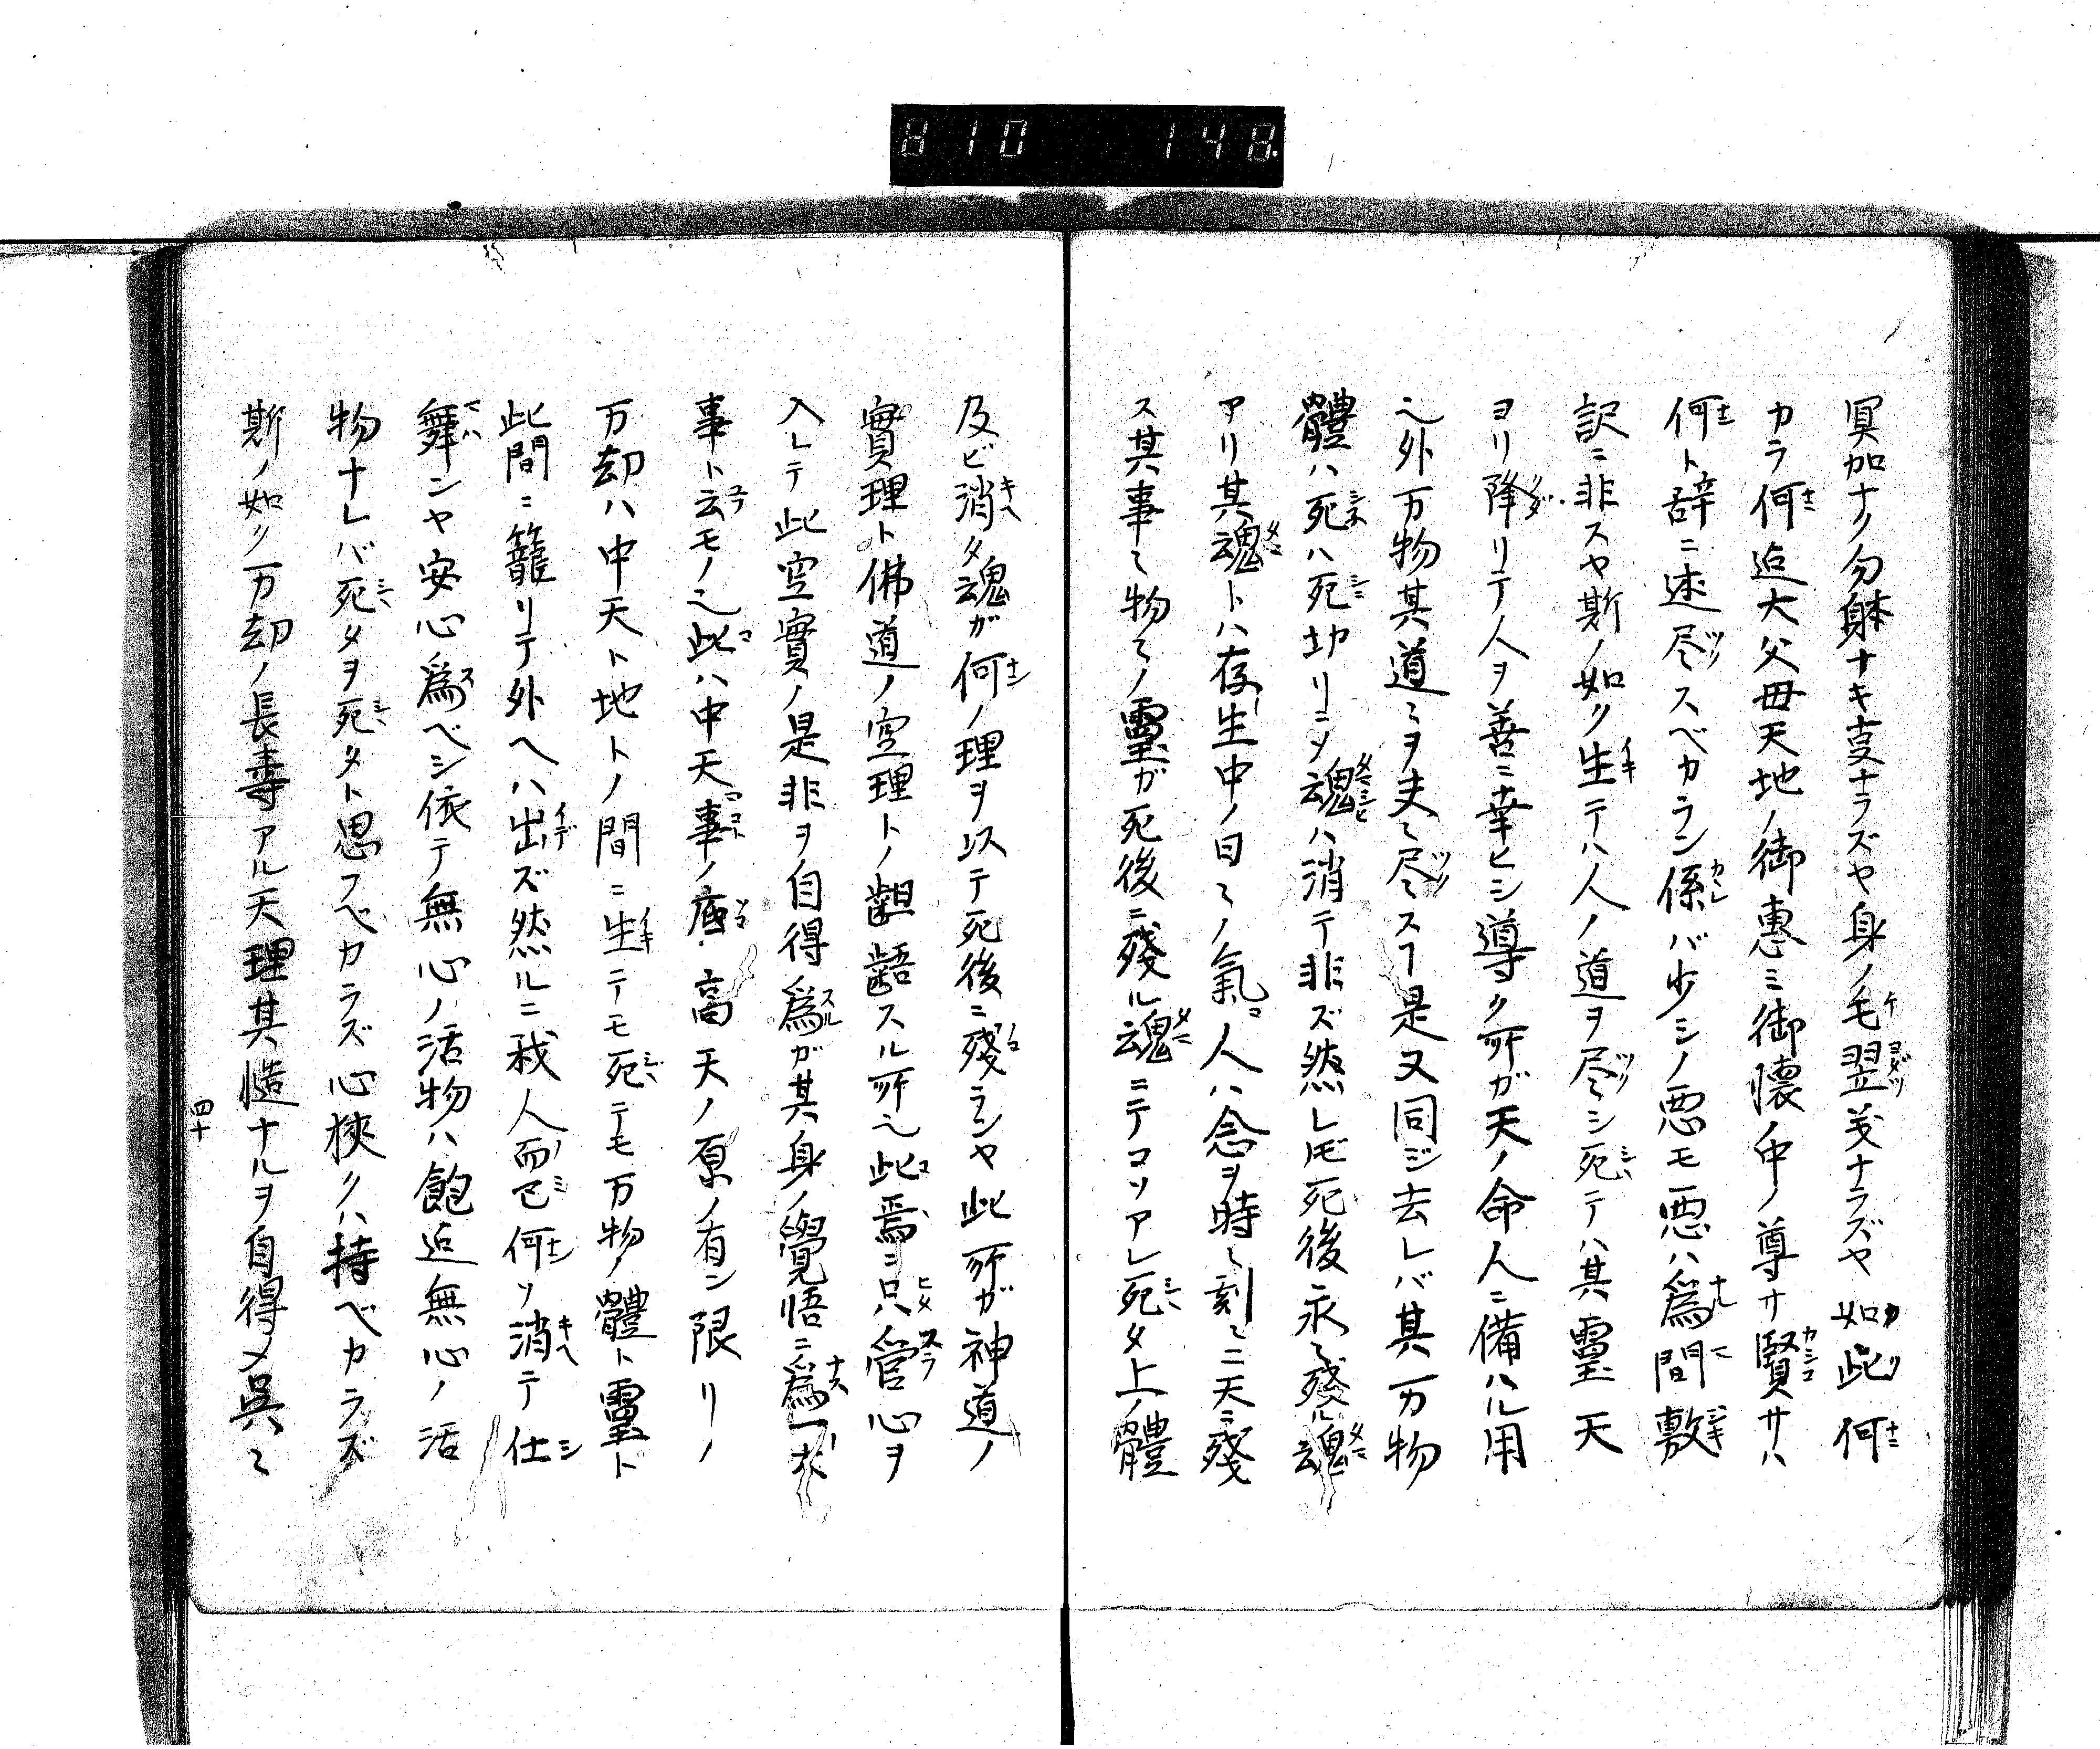 810 148.
冥加ナク勿躰ナキ叓ナラズヤ身ノ毛翌茂ナラズヤ如此何
カラ何迠大父母天地ノ御惠ミ御懐中ノ尊サ賢サハ
何ト辞ニ述尽スベカラン係バ少シノ悪モ悪ハ爲間敷
訳ニ非スヤ斯ノ如ク生テハ人ノ道ヲ尽シ死テハ其靈天
ヨリ降リテ人ヲ善ニ幸ヒシ導ク所ガ天ノ命人ニ備ハル用
之外万物其道〻ヲ夫〻尽スヿ是又同ジ去レバ其万物
體ハ死ハ死切リニソ魂ハ消テ非ズ然レ𪜈死後永〻殘ル魂
アリ其魂トハ存生中ノ日〻ノ氣人ハ念ヲ時〻刻〻ニ天ニ殘
ス其事〻物〻ノ靈ガ死後ニ殘ル魂ニテコソアレ死タ上ノ體
及ビ消タ魂ガ何ノ理ヲ以テ死後ニ殘ランヤ此所ガ神道ノ
實理ト佛道ノ空理トノ齟齬スル所之此焉ニ只管心ヲ
入レテ此空實ノ是非ヲ自得爲ガ其身ノ覺悟ニ爲一大
事ト云モノ之此ハ中天事ノ底高天ノ原ノ有ン限リノ
万却ハ中天ト地トノ間ニ生テモ死テモ万物ノ體ト靈ト
此間ニ籠リテ外ヘハ出ズ然ルニ我人而已何ソ消テ仕
舞ンヤ安心爲ベシ依テ無心ノ活物ハ飽迠無心ノ活
物ナレバ死タヲ死タト思フベカラズ心狹クハ持ベカラズ
斯ノ如ク万却ノ長壽アル天理其慥ナルヲ自得メ呉〻
四十